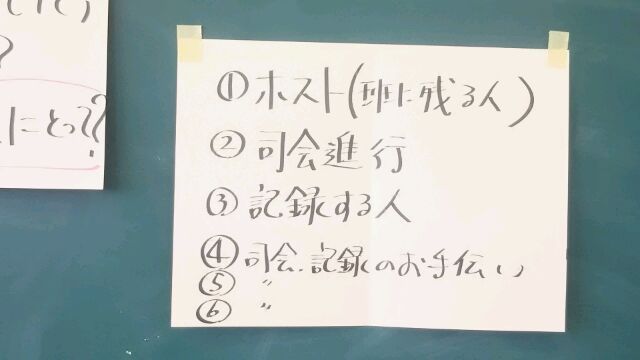 ？
にとって？
①ホスト(班に残る人)
②司会進行
③記録する人
④司会.記録のお手伝い
⑤ 〃
⑥ 〃